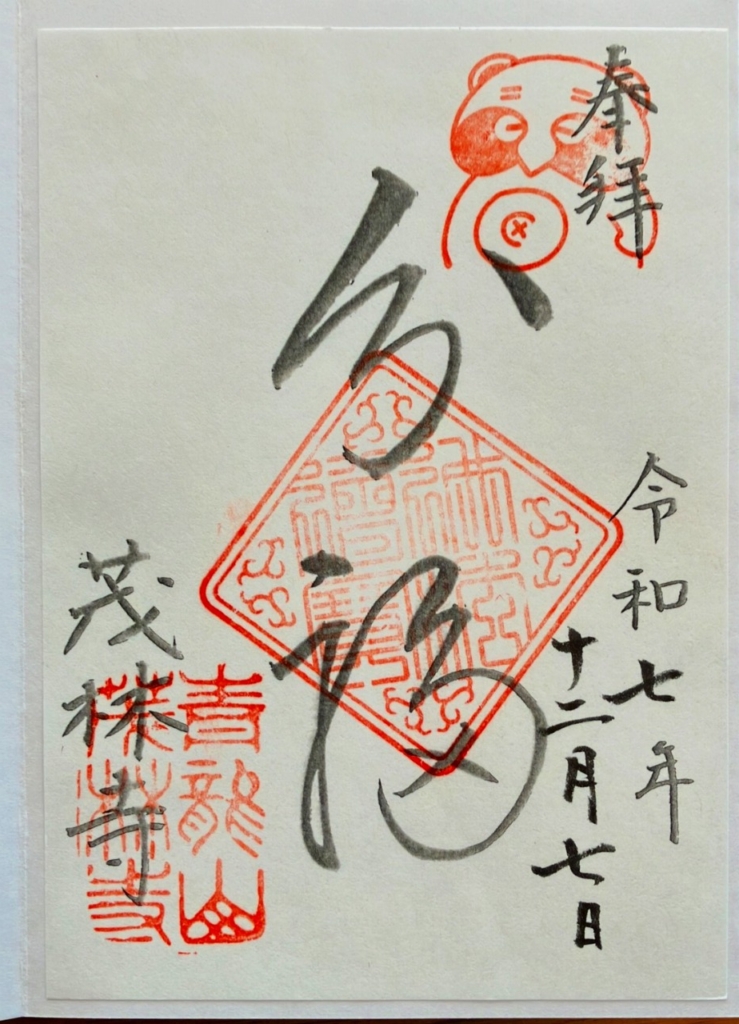 奉拝
令和七年
十二月七日
分福
佛法
僧寶
茂林寺
青龍山
茂林寺